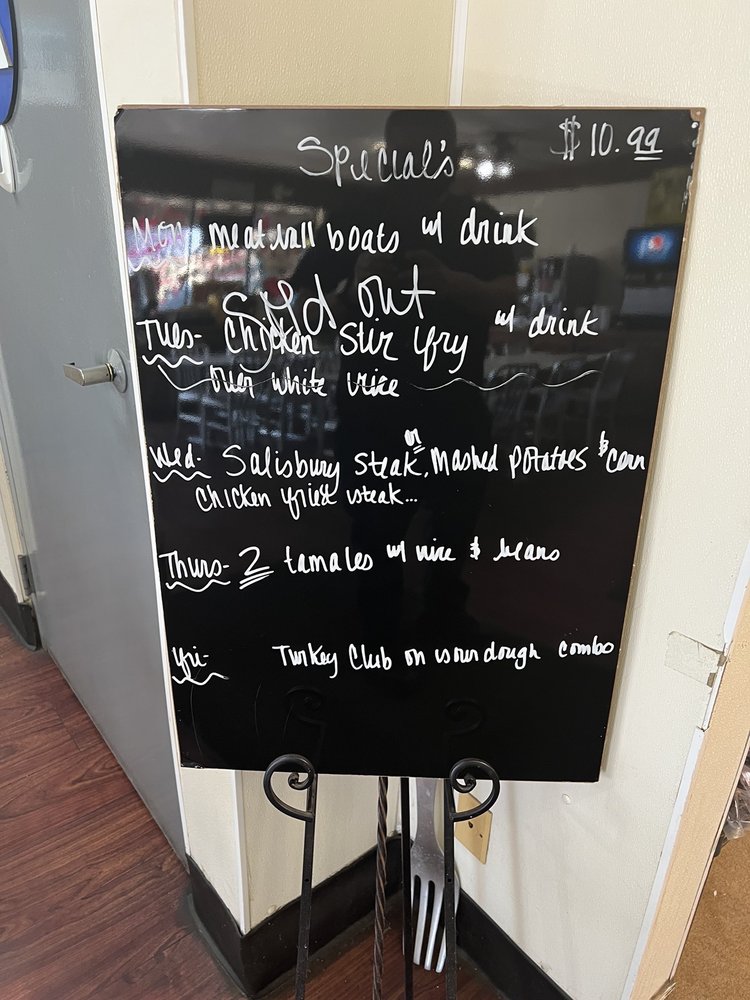 Special's $10.99
Mon- meatball boats w/ drink
Sold out
Tues- Chicken Stir fry w/ drink
over white rice
Wed- Salisbury Steak, or Mashed Potatoes & corn
Chicken fried steak...
Thurs- 2 tamales w/ rice & beans
Fri- Turkey Club on sourdough combo